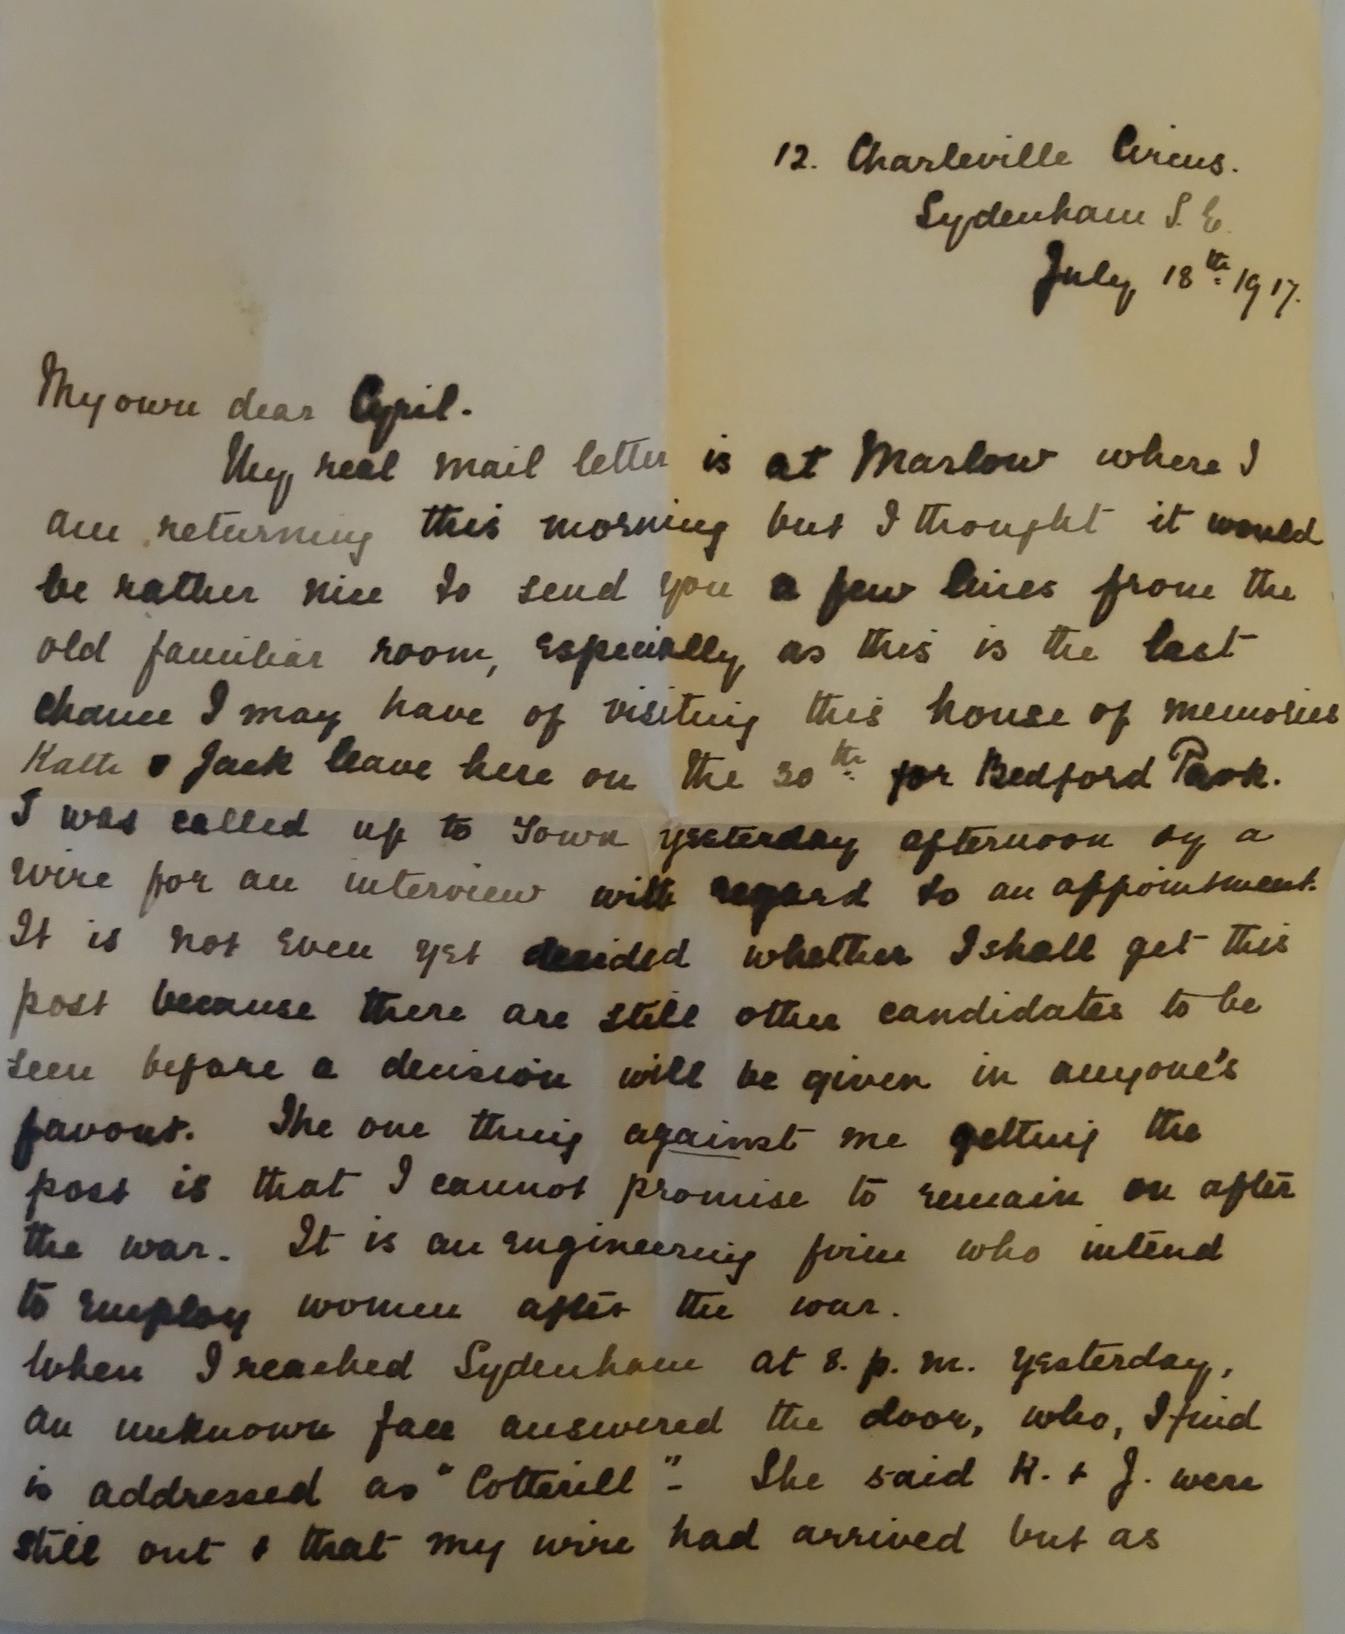 12. Charleville Circus.
Sydenham S.E.
July 18th 1917.
My own dear Cyril.
My real mail letter is at Marlow where I
am returning this morning but I thought it would
be rather nice to send you a few lines from the
old familiar room, especially as this is the last
chance I may have of visiting this house of memories
Kath & Jack leave here on the 30th for Bedford Park.
I was called up to Town yesterday afternoon by a
wire for an interview with regard to an appointment.
It is not even yet decided whether I shall get this
post because there are still other candidates to be
seen before a decision will be given in anyone's
favour. The one thing against me getting the
post is that I cannot promise to remain on after
the war. It is an engineering firm who intend
to employ women after the war.
When I reached Sydenham at 8. p.m. yesterday,
an unknown face answered the door, who, I find
is addressed as "Cotterill"- She said K. & J. were
still out & that my wire had arrived but as